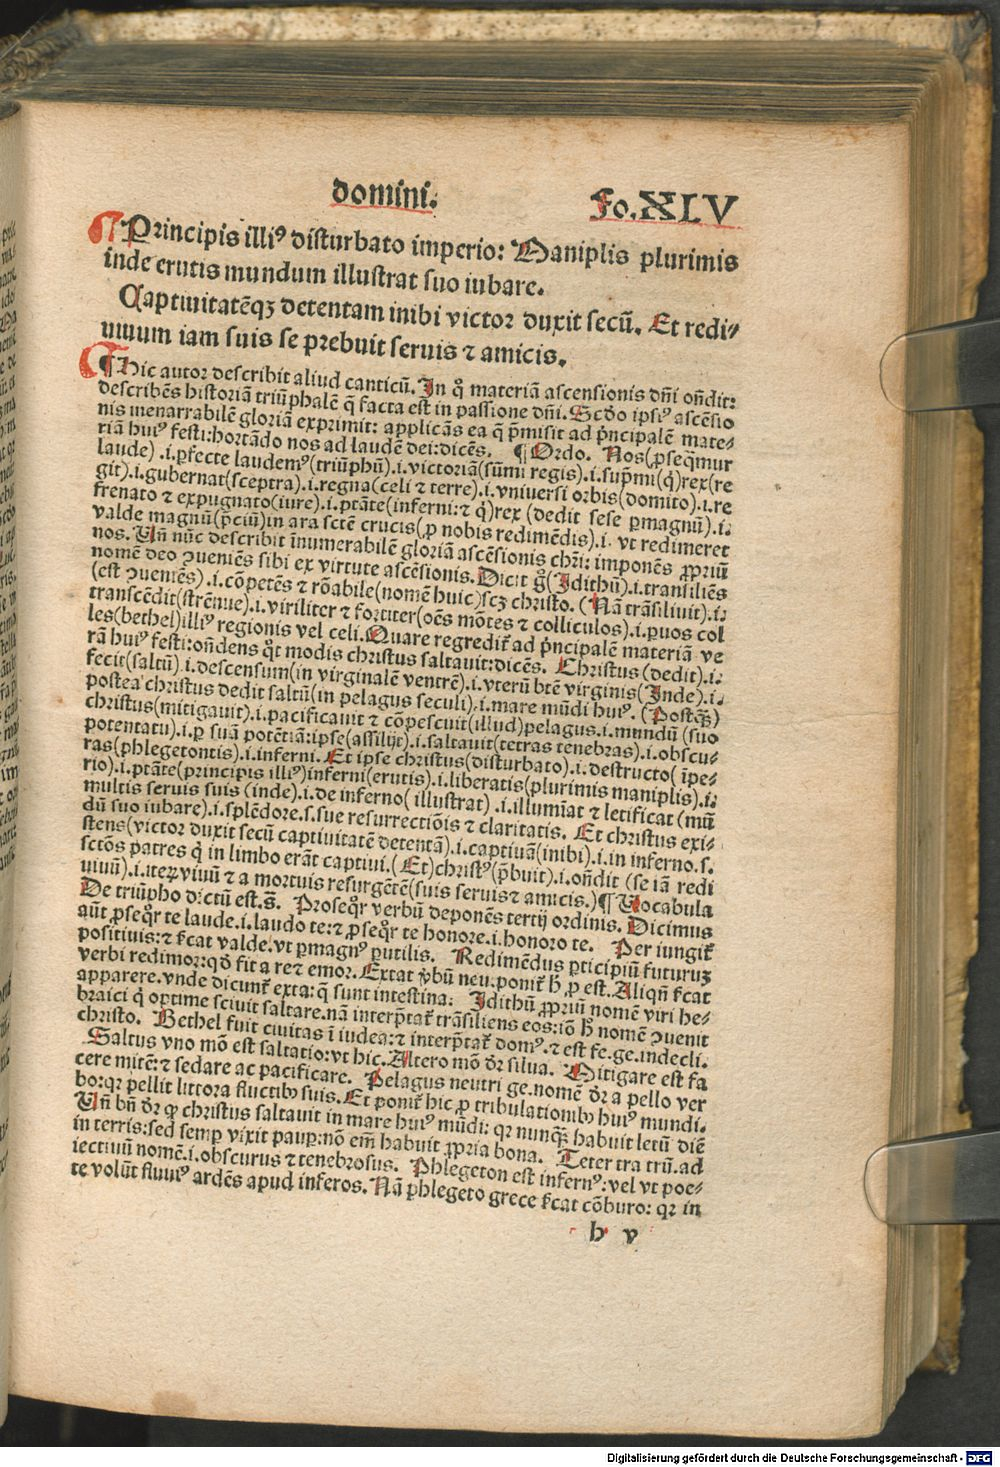 domini.
Fo.XLV
¶Principis illiꝰ disturbato imperio: Maniplis plurimis
inde erutis mundum illustrat suo iubare.
Captiuitatēqꝫ detentam inibi victor duxit secū. Et redi-
uiuum iam suis se prebuit seruis ⁊ amicis.
¶Hic autor describit aliud canticū. In q̊ materiā ascensionis dn̄i on̄dit:
describēs historiā triūphalē q̄ facta est in passione dn̄i. Scd̄o ipsiꝰ ascēsio
nis inenarrabilē gloriā exprimit: applicās ea q̄ p̄misit ad p̄ncipalē mate-
riā huiꝰ festi: hortādo nos ad laudē dei: dicēs. ¶Ordo. Nos (ꝓseq̄mur
laude) .i. ꝑfecte laudemꝰ (triūphū) .i. victoriā (sūmi regis) .i. sup̄mi (q̇) rex (re
git) .i. gubernat (sceptra) .i. regna (celi ⁊ terre) .i. vniuersi orbis (domito) .i. re
frenato ⁊ expugnato (iure) .i. ptāte (inferni: ⁊ q̇) rex (dedit sese ꝑmagnū) .i.
valde magnū (p̄ciū) in ara sctē crucis (ꝓ nobis redimēdis) .i. vt redimeret
nos. Un̄ nūc describit īnumerabilē gloriā ascēsionis chr̄i: imponēs ꝓpriū
nomē deo ꝯueniēs sibi ex virtute ascēsionis. Dicit g̊ (Idithū) .i. transiliēs
(est ꝯueniēs) .i. cōpetēs ⁊ rōabile (nomē huic) scꝫ christo. (Nā trāsiliuit) .i.
transcēdit (strēnue) .i. viriliter ⁊ fortiter (oēs mōtes ⁊ colliculos) .i. paruos col
les (bethel) illiꝰ regionis vel celi. Quare regredit̃ ad p̄ncipalē materiā ve
rā huiꝰ festi: on̄dens q̊t modis christus saltauit: dicēs. Christus (dedit) .i.
fecit (saltū) .i. descensum (in virginalē ventrē) .i. vterū btē virginis (Inde) .i.
postea christus dedit saltū (in pelagus seculi) .i. mare mūdi huiꝰ. (Postqꝫ̄)
christus (mitigauit) .i. pacificauit ⁊ cōpescuit (illud) pelagus .i. mundū (suo
potentatu) .i. ꝑ suā potētiā: ipse (assilijt) .i. saltauit (tetras tenebras) .i. obscu-
ras (phlegetontis) .i. inferni. Et ipse christus (disturbato) .i. destructo (īpe-
rio) .i. ptāte (principis illiꝰ) inferni (erutis) .i. liberatis (plurimis maniplis) .i.
multis seruis suis (inde) .i. de inferno (illustrat) .i. illumīat ⁊ letificat (mū
dū suo iubare) .i. splēdore .s. sue resurrectiōis ⁊ claritatis. Et christus exi-
stens (victor duxit secū captiuitatē detentā) .i. captiuā (inibi) .i. in inferno .s.
sctōs patres q̇ in limbo erāt captiui. (Et) christꝰ (p̄buit) .i. on̄dit (se iā redi
uiuū) .i. iteꝝ viuū ⁊ a mortuis resurgētē (suis seruis ⁊ amicis.) ¶Uocabula
De triūpho dictū est. s̄. Proseq̊r verbū deponēs tertij ordinis. Dicimus
aūt ꝓseq̊r te laude .i. laudo te: ⁊ ꝓseq̊r te honore .i. honoro te. Per iungit̃
positiuis: ⁊ s̄icat valde. vt ꝑmagnꝰ ꝑutilis. Redimēdus ꝑticipiū futuruꝫ
verbi redimor: qd̄ fit a re ⁊ emor. Extat v̄bū neu. ponit̃ h̄ ꝓ est. Aliqn̄ s̄icat
apparere. vnde dicunt̃ exta: q̄ sunt intestina: Idithū ꝓpriū nomē viri he-
braici q̇ optime sciuit saltare. nā interp̄tat̃ trāsiliens eos: iō h̄ nomē ꝯuenit
christo. Bethel fuit ciuitas ī iudea: ⁊ interp̄tat̃ domꝰ. ⁊ est fe. ge. indecli.
Saltus vno mō est saltatio: vt hic. Altero mō dr̄ silua. Mitigare est fa
cere mitē: ⁊ sedare ac pacificare. Pelagus neutri ge. nomē dr̄ a pello ver
bo: qꝛ pellit littora fluctibꝰ suis. Et ponit̃ hic ꝓ tribulationibꝰ huiꝰ mundi.
Un̄ bn̄ dr̄ ꝙ christus saltauit in mare huiꝰ mūdi: qꝛ nunqꝫ̄ habuit letū diē
in terris: sed semꝑ vixit pauꝑ: nō em̄ habuit ꝓpria bona. Teter tra trū. ad
iectiuū nomē .i. obscurus ⁊ tenebrosus. Phlegeton est infernꝰ: vel vt poe-
te volūt fluuiꝰ ardēs apud inferos. Nā phlegeto grece s̄icat cōburo: qꝛ in
h v
Digitalisierung gefördert durch die Deutsche Forschungsgemeinschaft - DFG